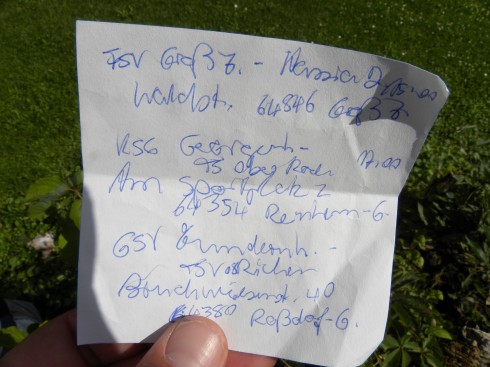 TSV Groß Z. - Hessia D
Waldst. 64846 Groß Z.
KSG Georgenh. -
TS Ober Roden 17.00
Am Sportplatz 2
64354 Reinheim-G.
GSV Gundernh. -
TSV Richen
Bruchwiesenst. 40
64380 Roßdorf-G.